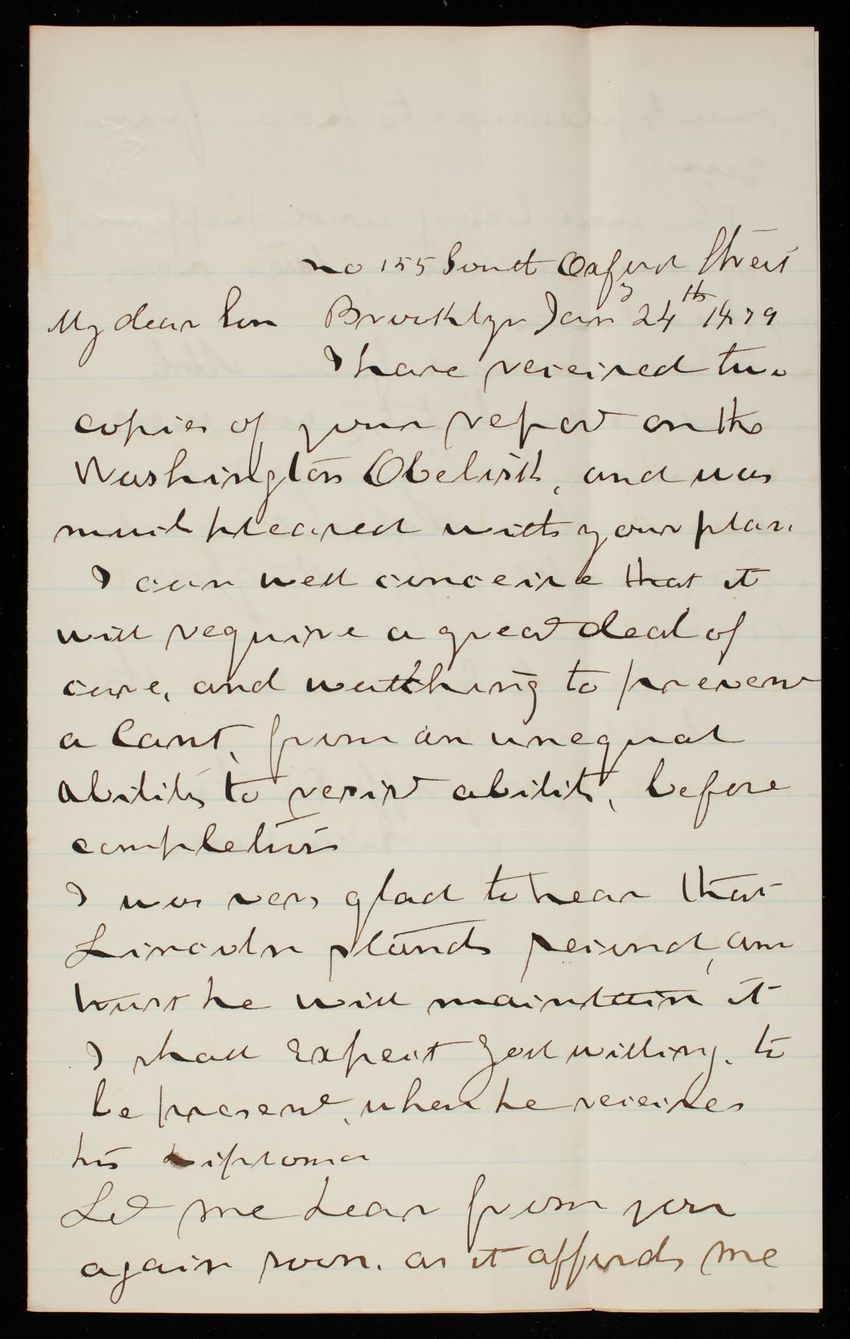 No 155 South Oxford Street
My dear Son Brooklyn Jany 24th 1879
I have received two
copies of your report on the
Washington Obelisk, and was
much pleased with your plan
I can well conceive that it
will require a great deal of
care, and watching to prevent
a cant, from an unequal
ability to resist ability, before
completion
I was very glad to hear that
Lincoln stands second, and
trust he will maintain it
I shall expect God willing, to
be present, when he receives
his Diploma
Let me hear from you
again soon. as it affords me